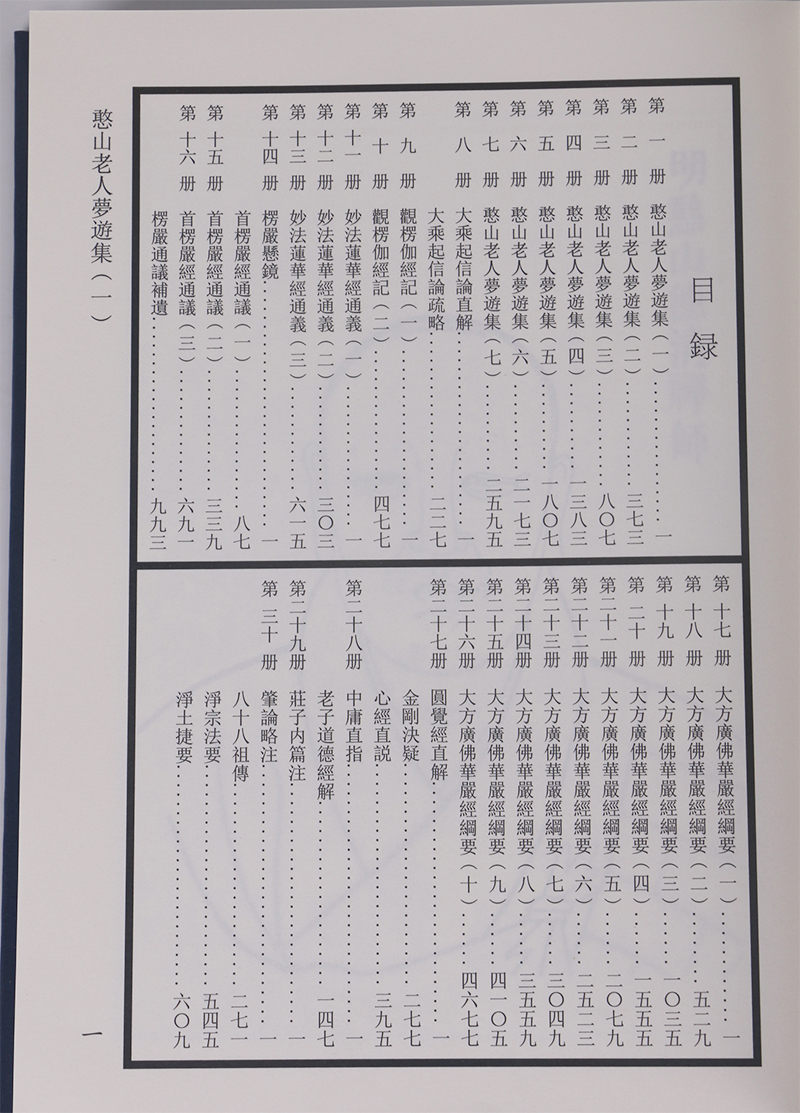 目録
第一册 憨山老人夢遊集(一)……一
第二册 憨山老人夢遊集(二)……三七三
第三册 憨山老人夢遊集(三)……八〇七
第四册 憨山老人夢遊集(四)……一三八三
第五册 憨山老人夢遊集(五)……一八〇七
第六册 憨山老人夢遊集(六)……二一七三
第七册 憨山老人夢遊集(七)……二五九五
第八册 大乘起信論直解……一
大乘起信論疏略……二二七
第九册 觀楞伽經記(一)……一
第十册 觀楞伽經記(二)……四七七
第十一册 妙法蓮華經通義(一)……一
第十二册 妙法蓮華經通義(二)……三〇三
第十三册 妙法蓮華經通義(三)……六一五
第十四册 楞嚴懸鏡……一
首楞嚴經通議(一)……八七
第十五册 首楞嚴經通議(二)……三三九
第十六册 首楞嚴經通議(三)……六九一
楞嚴通議補遺……九九三
第十七册 大方廣佛華嚴經綱要(一)……一
第十八册 大方廣佛華嚴經綱要(二)……五二九
第十九册 大方廣佛華嚴經綱要(三)……一〇三五
第二十册 大方廣佛華嚴經綱要(四)……一五五五
第二十一册 大方廣佛華嚴經綱要(五)……二〇七九
第二十二册 大方廣佛華嚴經綱要(六)……二五二三
第二十三册 大方廣佛華嚴經綱要(七)……三〇四九
第二十四册 大方廣佛華嚴經綱要(八)……三五五九
第二十五册 大方廣佛華嚴經綱要(九)……四一〇五
第二十六册 大方廣佛華嚴經綱要(十)……四六七七
第二十七册 圓覺經直解……一
金剛決疑……二七七
心經直説……三九五
第二十八册 中庸直指……一
老子道德經解……一四七
第二十九册 莊子内篇注……一
第三十册 肇論略注……一
八十八祖傳……二七一
淨宗法要……五四五
淨土捷要……六〇九
憨山老人夢遊集(一)
一